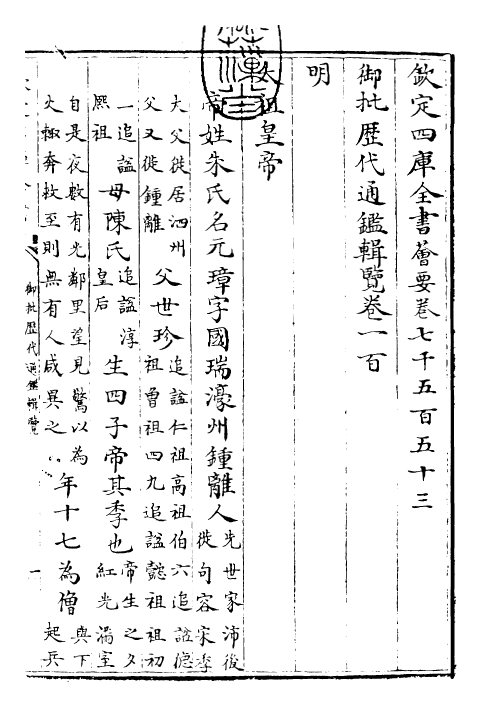 欽定四庫全書薈要卷七千五百五十三
御批歷代通鑑輯覽卷一百
明
太祖皇帝
帝姓朱氏名元璋字國瑞濠州鍾離人先世家沛後徙句容宋季
大父徙居泗州父又徙鍾離父世珍追諡仁祖高祖伯六追諡德祖曾祖四九追諡懿祖祖初
一追諡熙祖母陳氏追諡淳皇后生四子帝其季也帝生之夕紅光滿室
自是夜數有光鄰里望見驚以為火輙奔救至則無有人咸異之年十七為僧與下起兵
御批歷代通鑑輯覽
一